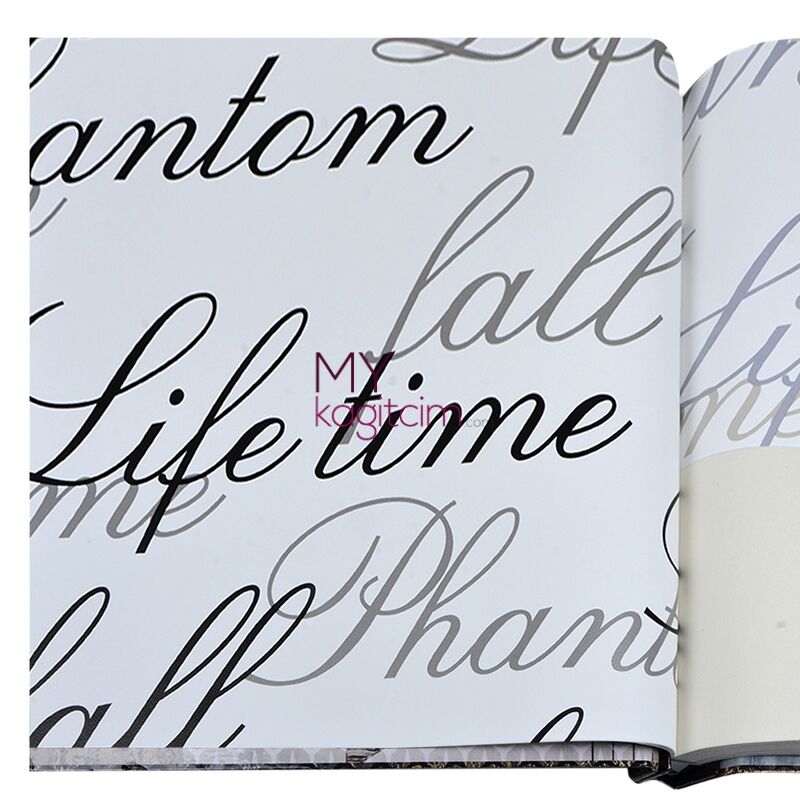 Life
antom
fall
Life time
MY
kagitcim.com
me
Phant
fall